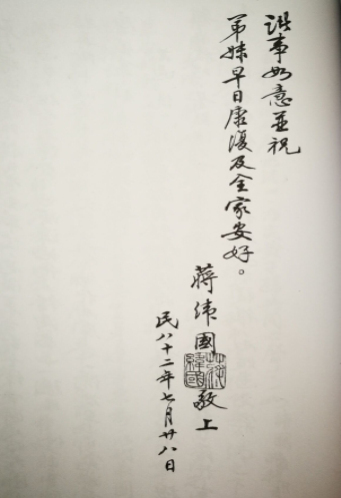 諸事如意並祝
弟妹早日康復及全家安好。
蔣緯國敬上
民八十二年七月廿八日